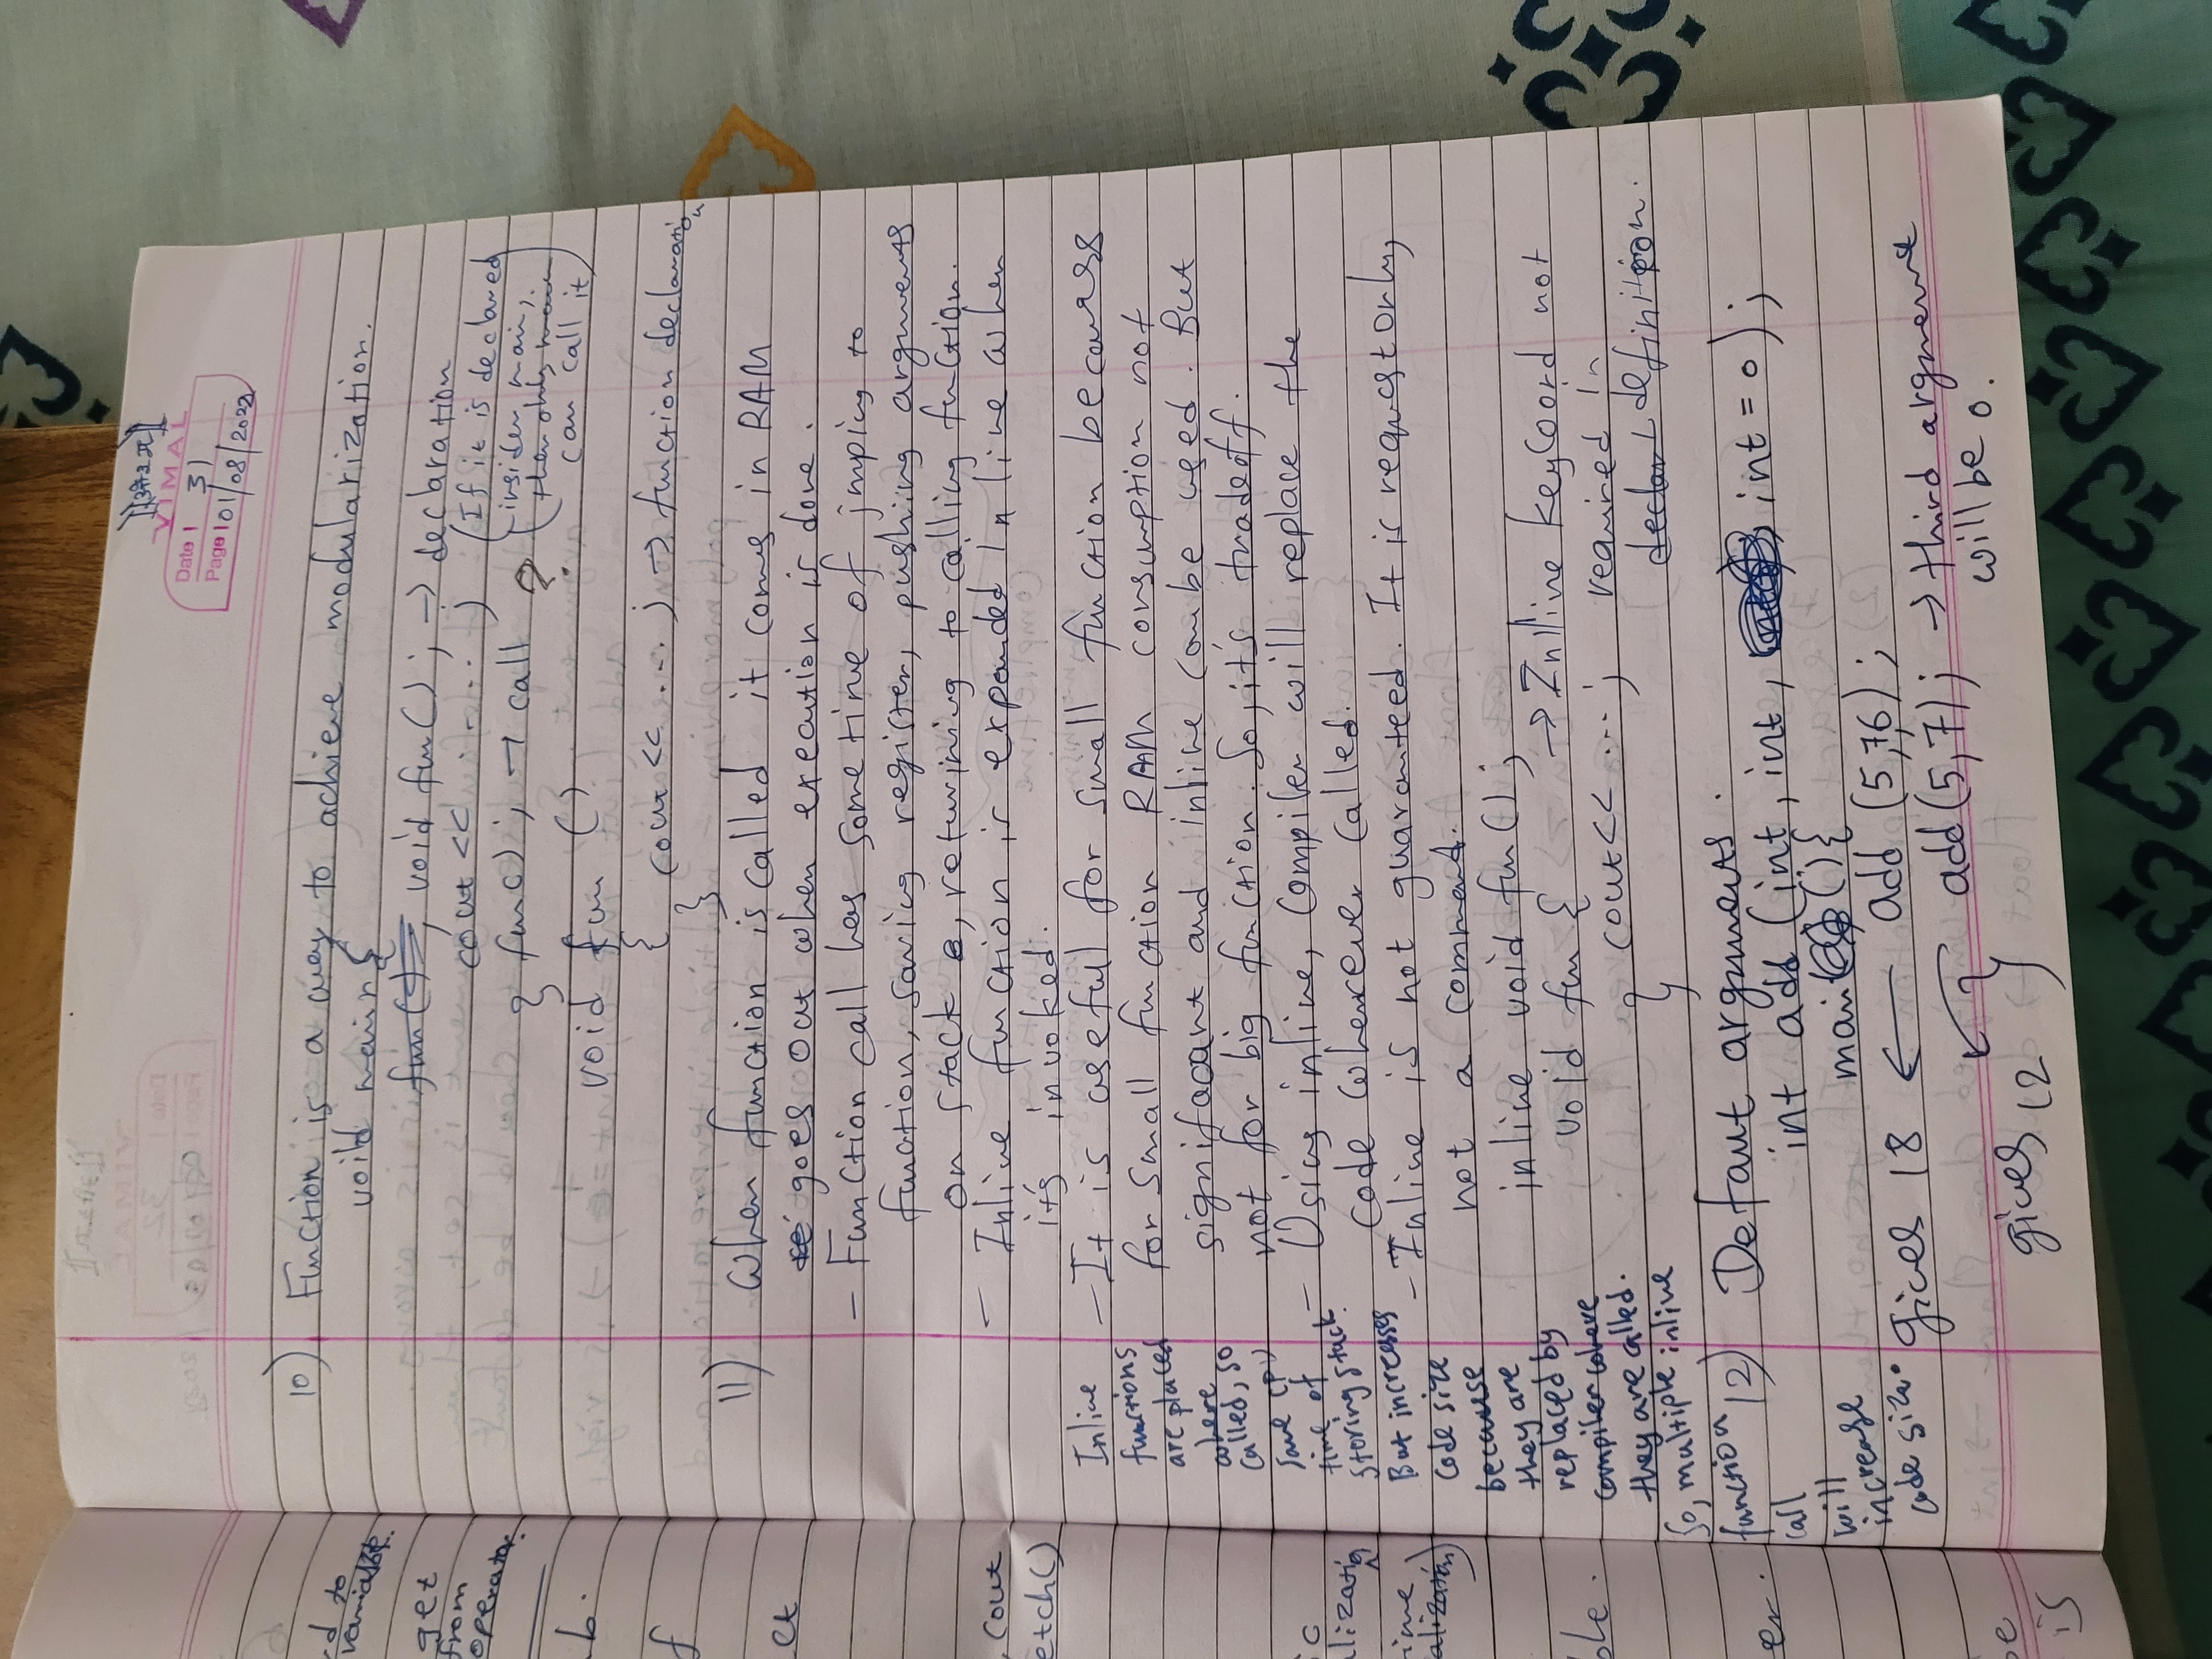 VIMAL
Date | 31
Page | 01/08/2022
10) Function is a way to achieve modularization.
void main {
fun() , void fun() ; → declaration
cout << ..... ; (If it is declared
fun() ; → call ? insiden main,
} then only main
can call it)
void fun ()
{ cout << ... ; → function declaration
}
11) When function is called it comes in RAM
goes out when execution is done.
- Function call has some time of jmping to
function, saving register, pushing arguments
on stack , returining to calling function.
- Inline function is expanded in line when
it's invoked.
- It is useful for small function becauess
for small function RAM consumption not
signifacant and inline can be used. But
not for big function. So, it's tradeoff.
- Using inline, compiler will replace the
code wherever called.
- Inline is not guaranteed. It is request only,
not a command.
inline void fun();
void fun { → Inline keyword not
cout << ... ; required in
} declar definition.
Inline
functions
are placed
where
called, so
save CPU
time of
storing stack.
But increases
code size
because
they are
replaced by
compiler where
they are called.
So, multiple inline
function
call
will
increase
code size.
12) Defaut arguments.
int add (int, int, int = 0);
main () {
gives 18 ← add (5,76);
add (5,7); → third argument
will be 0.
gives 12 }
rd to
variable.
get
from
operator.
b.
f
et
, cout
etch()
ic
lization
ime
alization)
ble.
er.
be
is